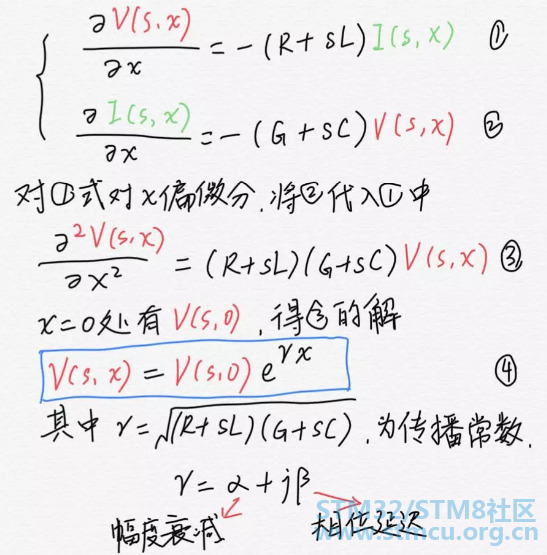 ∂V(s,x)/∂x = -(R+sL)I(s,x) ①
∂I(s,x)/∂x = -(G+sC)V(s,x) ②
对①式对x偏微分,将②代入①中
∂²V(s,x)/∂x² = (R+sL)(G+sC)V(s,x) ③
x=0处有V(s,0),得③的解
V(s,x) = V(s,0)e^γx ④
其中γ=√(R+sL)(G+sC),为传播常数.
γ = α + jβ
幅度衰减 相位延迟
STM32/STM8社区
www.stmcu.org.cn